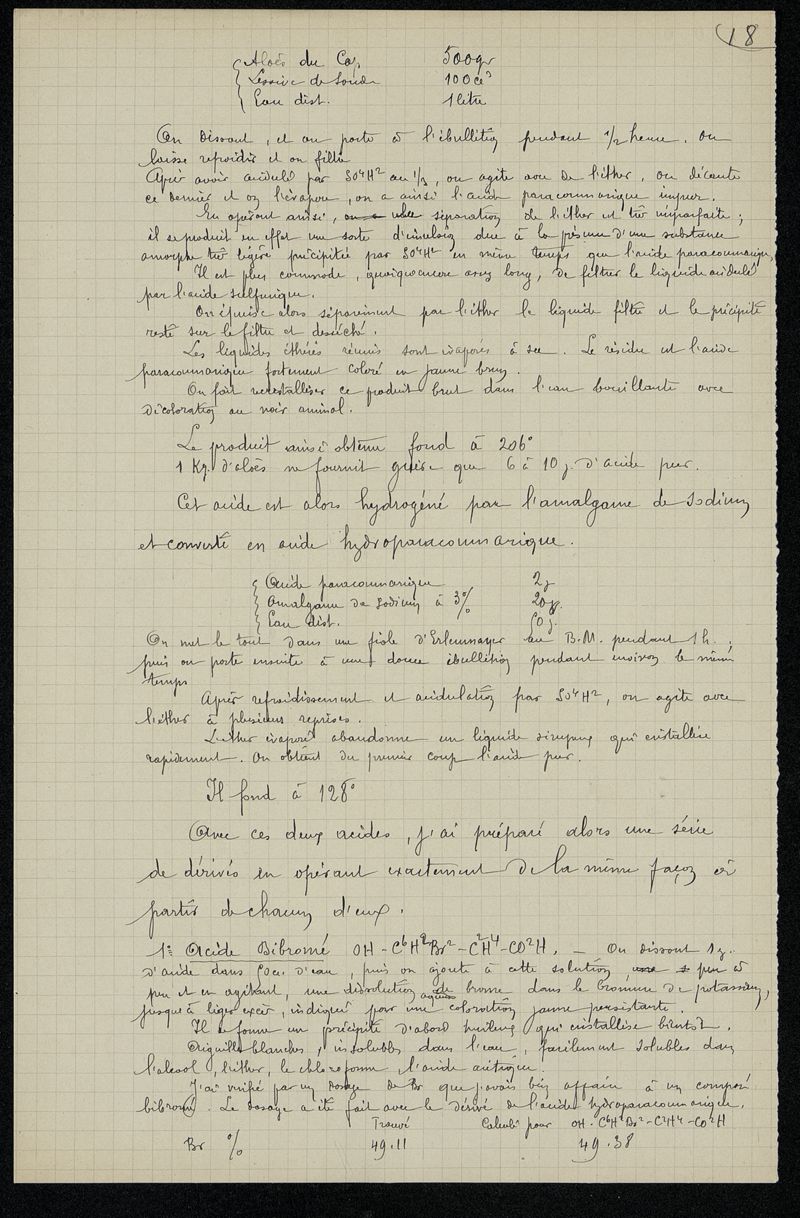 18
Aloès du Cap. 500gr
Lessive de soude 100cc³
Eau dist. 1 litre
On dissout, et on porte à l'ébullition pendant 1/2 heure. On
laisse refroidir et on filtre
Après avoir acidulé par SO⁴H² au 1/3, on agite avec de l'éther, on décante
ce dernier et on l'évapore, on a ainsi l'acide paracoumarique impur.
En opérant ainsi, séparation de l'éther est très imparfaite ;
il se produit en effet une sorte d'émulsion due à la présence d'une substance
amorphe très légère précipitée par SO⁴H² en même temps que l'acide paracoumarique,
Il est plus commode, quoique encore assez long, de filtrer le liquide acidulé
par l'acide sulfurique.
On épuise alors séparément par l'éther le liquide filtré et le précipité
resté sur le filtre et desséché.
Les liquides éthérés réunis sont évaporés à sec. Le résidu est l'acide
paracoumarique fortement coloré en jaune brun.
On fait recristalliser ce produit brut dans l'eau bouillante avec
décoloration au noir animal.
Le produit ainsi obtenu fond à 206°
1 Kg. d'aloès ne fournit guère que 6 à 10 g. d'acide pur.
Cet acide est alors hydrogéné par l'amalgame de sodium
et converti en acide hydroparacoumarique.
Acide paracoumarique 2g
Amalgame de sodium à 3% 20g.
Eau dist. 50g.
On met le tout dans une fiole d'Erlenmayer au B.M. pendant 1h. ;
puis on porte ensuite à une douce ébullition pendant environ le même
temps
Après refroidissement et acidulation par SO⁴H², on agite avec
l'éther à plusieurs reprises.
L'éther évaporé abandonne un liquide sirupeux qui cristallise
rapidement. On obtient du premier coup l'acide pur.
Il fond à 128°
Avec ces deux acides, j'ai préparé alors une série
de dérivés en opérant exactement de la même façon à
partir de chacun d'eux.
1° Acide Bibromé OH-C⁶H²Br²-C²H⁴-CO²H. — On dissout 1g.
d'acide dans 50cc. d'eau, puis on ajoute à cette solution, peu à
peu et en agitant, une dissolution aqueuse de brome dans le bromure de potassium,
jusqu'à léger excès, indiqué par une coloration jaune persistante.
Il se forme un précipité d'abord huileux qui cristallise bientôt.
Aiguilles blanches, insolubles dans l'eau, facilement solubles dans
l'alcool, l'éther, le chloroforme, l'acide acétique.
J'ai vérifié par un dosage de Br que j'avais bien affaire à un composé
bibromé. Le dosage a été fait avec le dérivé de l'acide hydroparacoumarique.
Trouvé Calculé pour OH-C⁶H²Br²-C²H⁴-CO²H
Br % 49.11 49.38